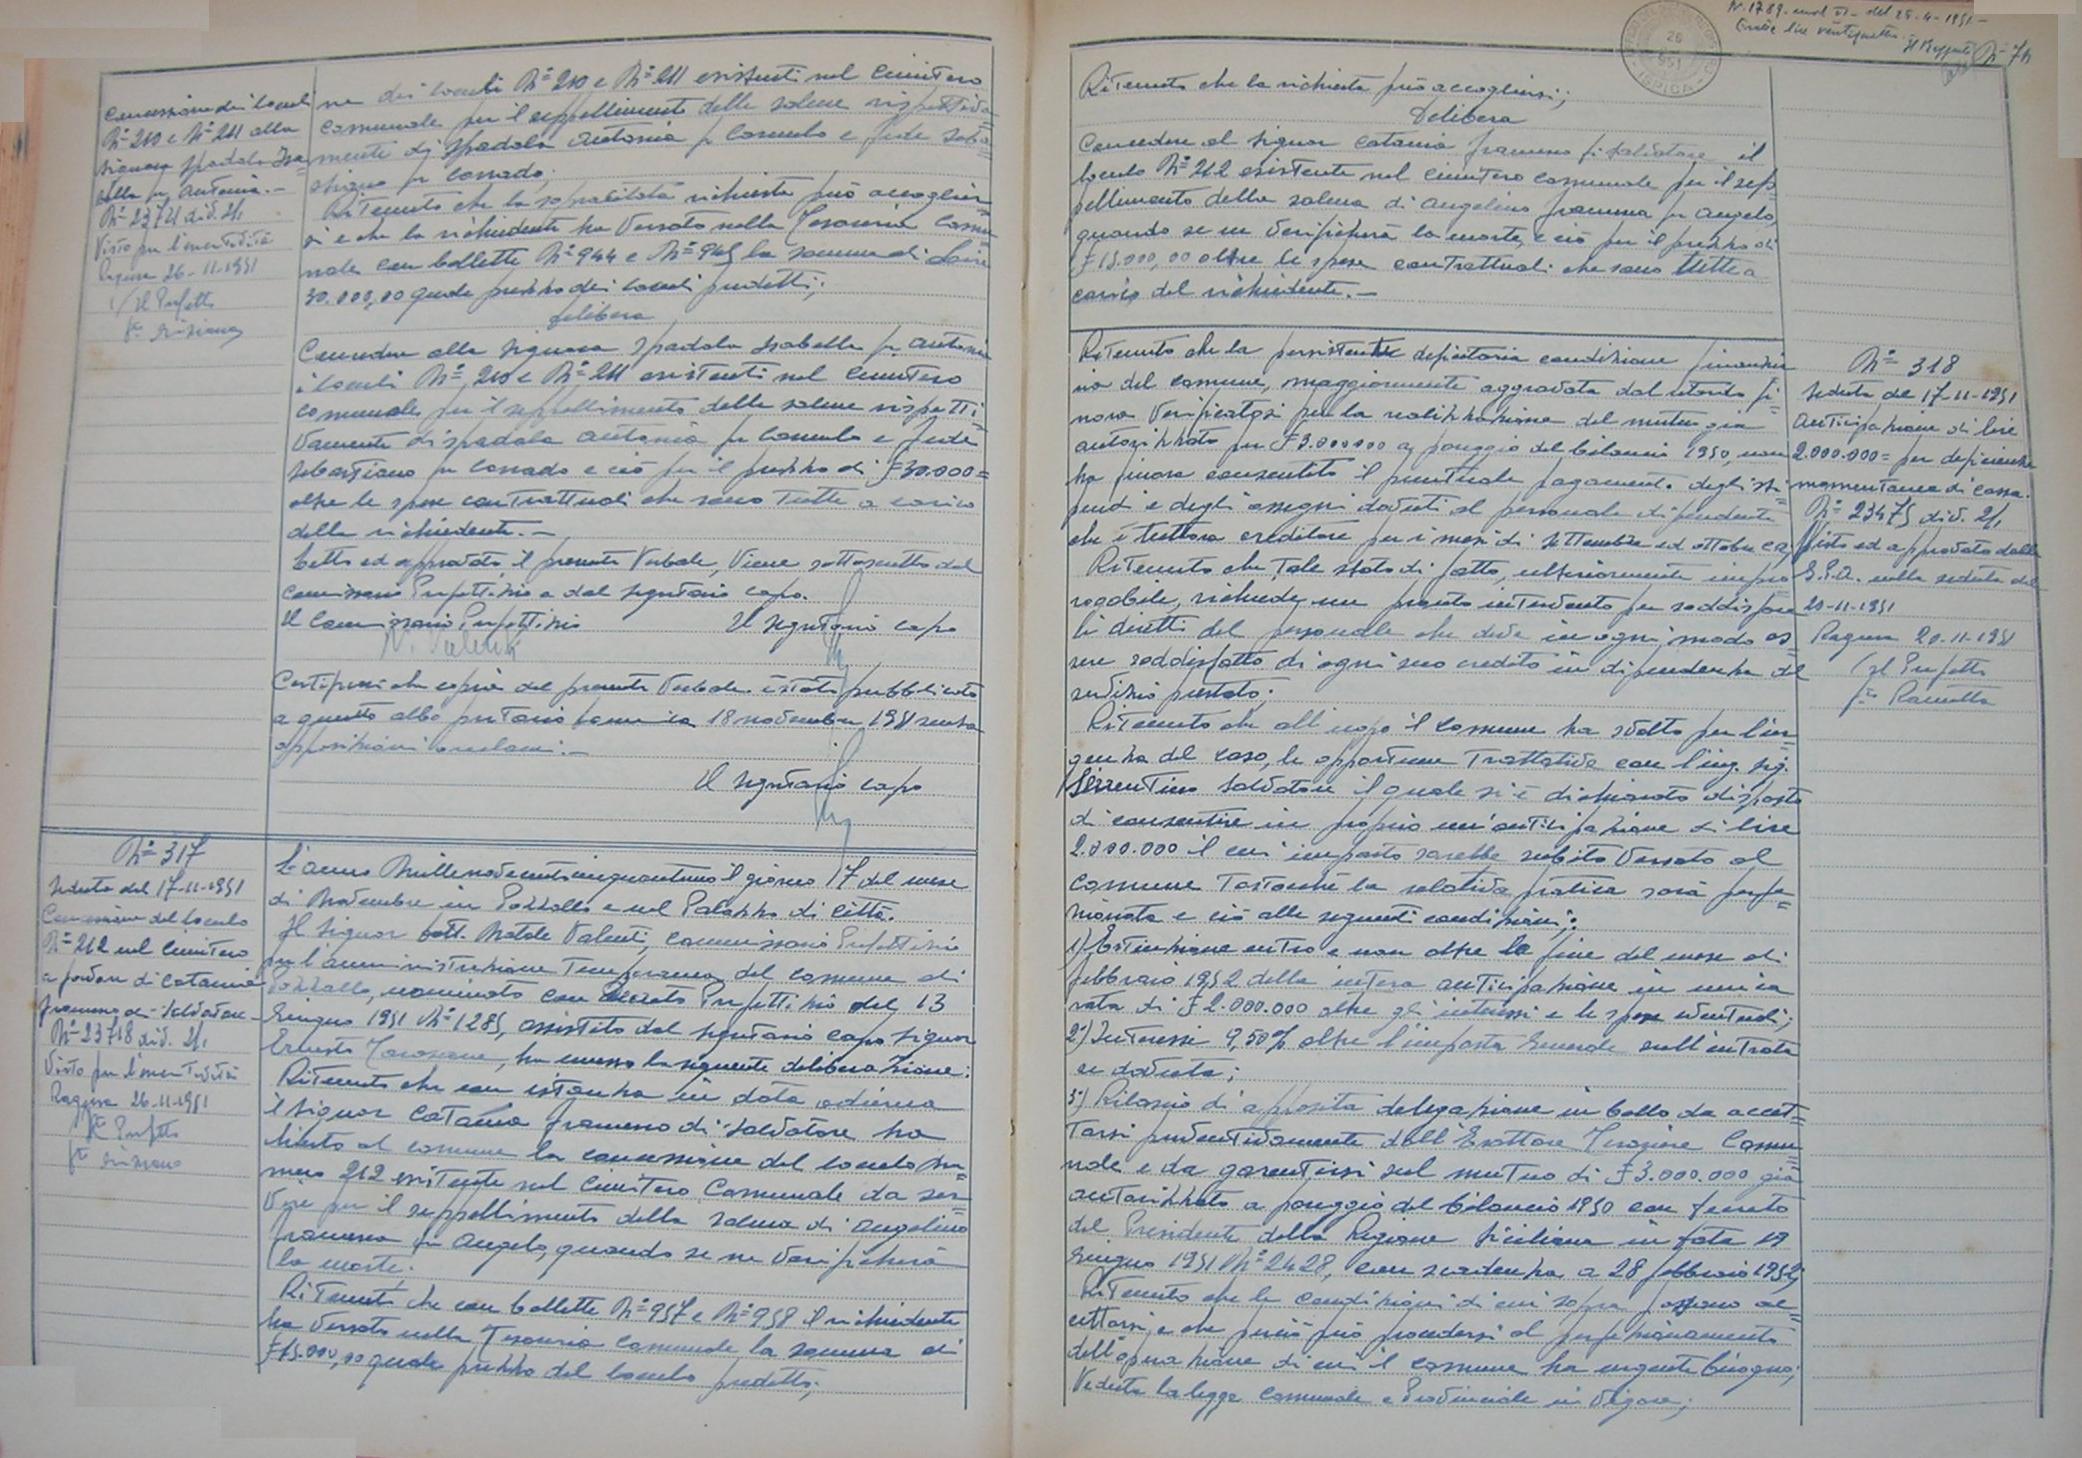 Concessione dei loculi
N° 210 e N° 211 alla
Signora Spadola Isa=
bella fu Antonio.-
N° 23721 div. 2/1
Visto per l'esecutività
Ragusa 26-11-1951
Il Prefetto
ne dei loculi N° 210 e N° 211 esistenti nel Cimitero
Comunale per il seppellimento delle salme rispettiva=
mente di Spadola Antonio fu Carmelo e Fede Seba=
stiano fu Corrado;
Ritenuto che la sopracitata richiesta può accoglier=
si e che la richiedente ha versato nella Tesoreria Comu=
nale con bollette N° 944 e N° 945 la somma di Lire
30.000,00 quale prezzo dei loculi predetti;
Delibera
Concedere alla Signora Spadola Isabella fu Antonio
i loculi N° 210 e N° 211 esistenti nel Cimitero
Comunale per il seppellimento delle salme rispetti=
vamente di Spadola Antonio fu Carmelo e Fede
Sebastiano fu Corrado e ciò per il prezzo di £ 30.000=
oltre le spese contrattuali che sono tutte a carico
della richiedente.-
Letto ed approvato il presente Verbale, viene sottoscritto dal
Commissario Prefettizio e dal Segretario capo.
Il Commissario Prefettizio Il Segretario capo
Certificasi che copia del presente Verbale è stata pubblicata
a questo albo pretorio 18 novembre 1951 senza
opposizioni o reclami.-
Il Segretario capo
N° 317
Seduta del 17-11-1951
Concessione del loculo
N° 212 nel Cimitero
a favore di Catania
Francesco di Salvatore-
N° 23718 div. 2/1
Visto per l'esecutività
Ragusa 26-11-1951
Il Prefetto
L'anno Millenovecentocinquantuno il giorno 17 del mese
di Novembre in Pozzallo e nel Palazzo di Città.
Il Signor Dott. Natale Valenti, Commissario Prefettizio
per l'amministrazione Temporanea del comune di
Pozzallo, nominato con Decreto Prefettizio del 13
Giugno 1951 N° 1285, assistito dal Segretario capo Signor
Ernesto, ha emesso la seguente deliberazione:
Ritenuto che con istanza in data odierna
il Signor Catania Francesco di Salvatore ha
chiesto al comune la concessione del loculo nu=
mero 212 esistente nel Cimitero Comunale da ser=
vire per il seppellimento della salma di Angelino
Francesca fu Angelo, quando se ne verificherà
la morte.
Ritenuto che con bollette N° 957 e N° 958 il richiedente
ha versato nella Tesoreria comunale la somma di
£ 15.000,00 quale prezzo del loculo predetto;
N. 1789 del 25-4-1951-
N° 74
26
951
ISPICA
Ritenuto che la richiesta può accogliersi;
Delibera
Concedere al Signor Catania Francesco di Salvatore il
loculo N° 212 esistente nel cimitero comunale per il sep=
pellimento della salma di Angelino Francesca fu Angelo,
quando se ne verificherà la morte, e ciò per il prezzo di
£ 15.000,00 oltre le spese contrattuali che sono tutte a
carico del richiedente.-
Ritenuto che la persistente deficitaria condizione finanzia=
ria del comune, maggiormente aggravata dal ritardo fi=
nora verificatosi per la realizzazione del mutuo già
autorizzato per £ 3.000.000 a pareggio del bilancio 1950, non
ha finora consentito il puntuale pagamento degli sti=
pendi e degli assegni dovuti al personale dipendente
che è tuttora creditore per i mesi di Settembre ed Ottobre
Ritenuto che, tale stato di fatto, ulteriormente impro=
rogabile, richiede un pronto intervento per soddisfare
li diretti del personale che deve in ogni modo es=
sere soddisfatto di ogni suo credito in dipendenza del
servizio prestato;
Ritenuto che all'uopo il comune ha svolto per l'ur=
genza del caso, le opportune trattative con l'ing. Sig.
Sorrentino Salvatore il quale si è dichiarato disposto
di consentire in proprio un'anticipazione di lire
2.000.000 il cui importo sarebbe subito versato al
comune tostochè la relativa pratica sarà perfe=
zionata e ciò alle seguenti condizioni;:
1) Estinzione entro e non oltre la fine del mese di
febbraio 1952 della intera anticipazione in unica
rata di £ 2.000.000 oltre gli interessi e le spese eventuali;
2) Interesse 9,50% oltre l'imposta Generale sull'entrata
se dovuta;
3) Rilascio di apposita delegazione in bollo da accet=
tarsi preventivamente dall'Esattore Tesoriere Comu=
nale e da garantirsi sul mutuo di £ 3.000.000 già
autorizzato a pareggio del bilancio 1950 con Decreto
del Presidente della Regione Siciliana in data 19
Giugno 1951 N° 2428, con scadenza a 28 febbraio 1952;
Ritenuto che le condizioni di cui sopra possono ac=
cettarsi, e che perciò può procedersi al perfezionamento
dell'operazione di cui il comune ha urgente bisogno;
Veduta la legge Comunale e Provinciale in vigore;
N° 318
Seduta del 17-11-1951
Anticipazione di lire
2.000.000= per deficienza
momentanea di cassa.
N° 23475 div. 2/1
Visto ed approvato dalla
G.P.A. nella seduta del
20-11-1951
Ragusa 20-11-1951
Il Prefetto